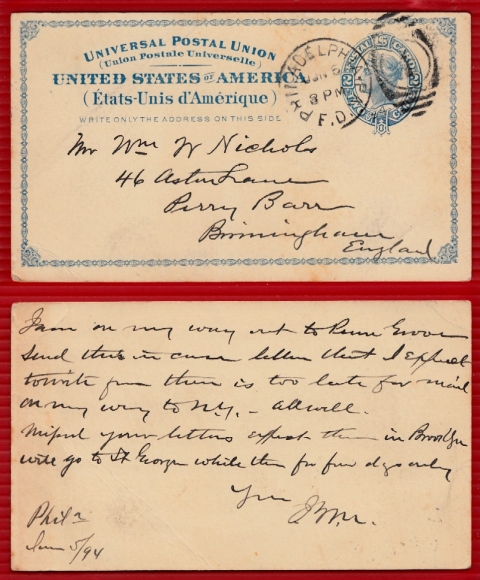 UNIVERSAL POSTAL UNION
(Union Postale Universelle)
UNITED STATES OF AMERICA.
(États-Unis d'Amérique)
WRITE ONLY THE ADDRESS ON THIS SIDE
PHILADELPHIA
5
3 PM
F.D.
POSTAL CARD
Mr Wm W Nichols
46 Aston Lane
Perry Barr
Birmingham
England
I am on my way out to
Send this in case letter that I expect
to write from there is too late for mail
on my way to N.Y. - all well.
your letters expect them in Brooklyn
will go to St George while there for few days only
Phila
5/94